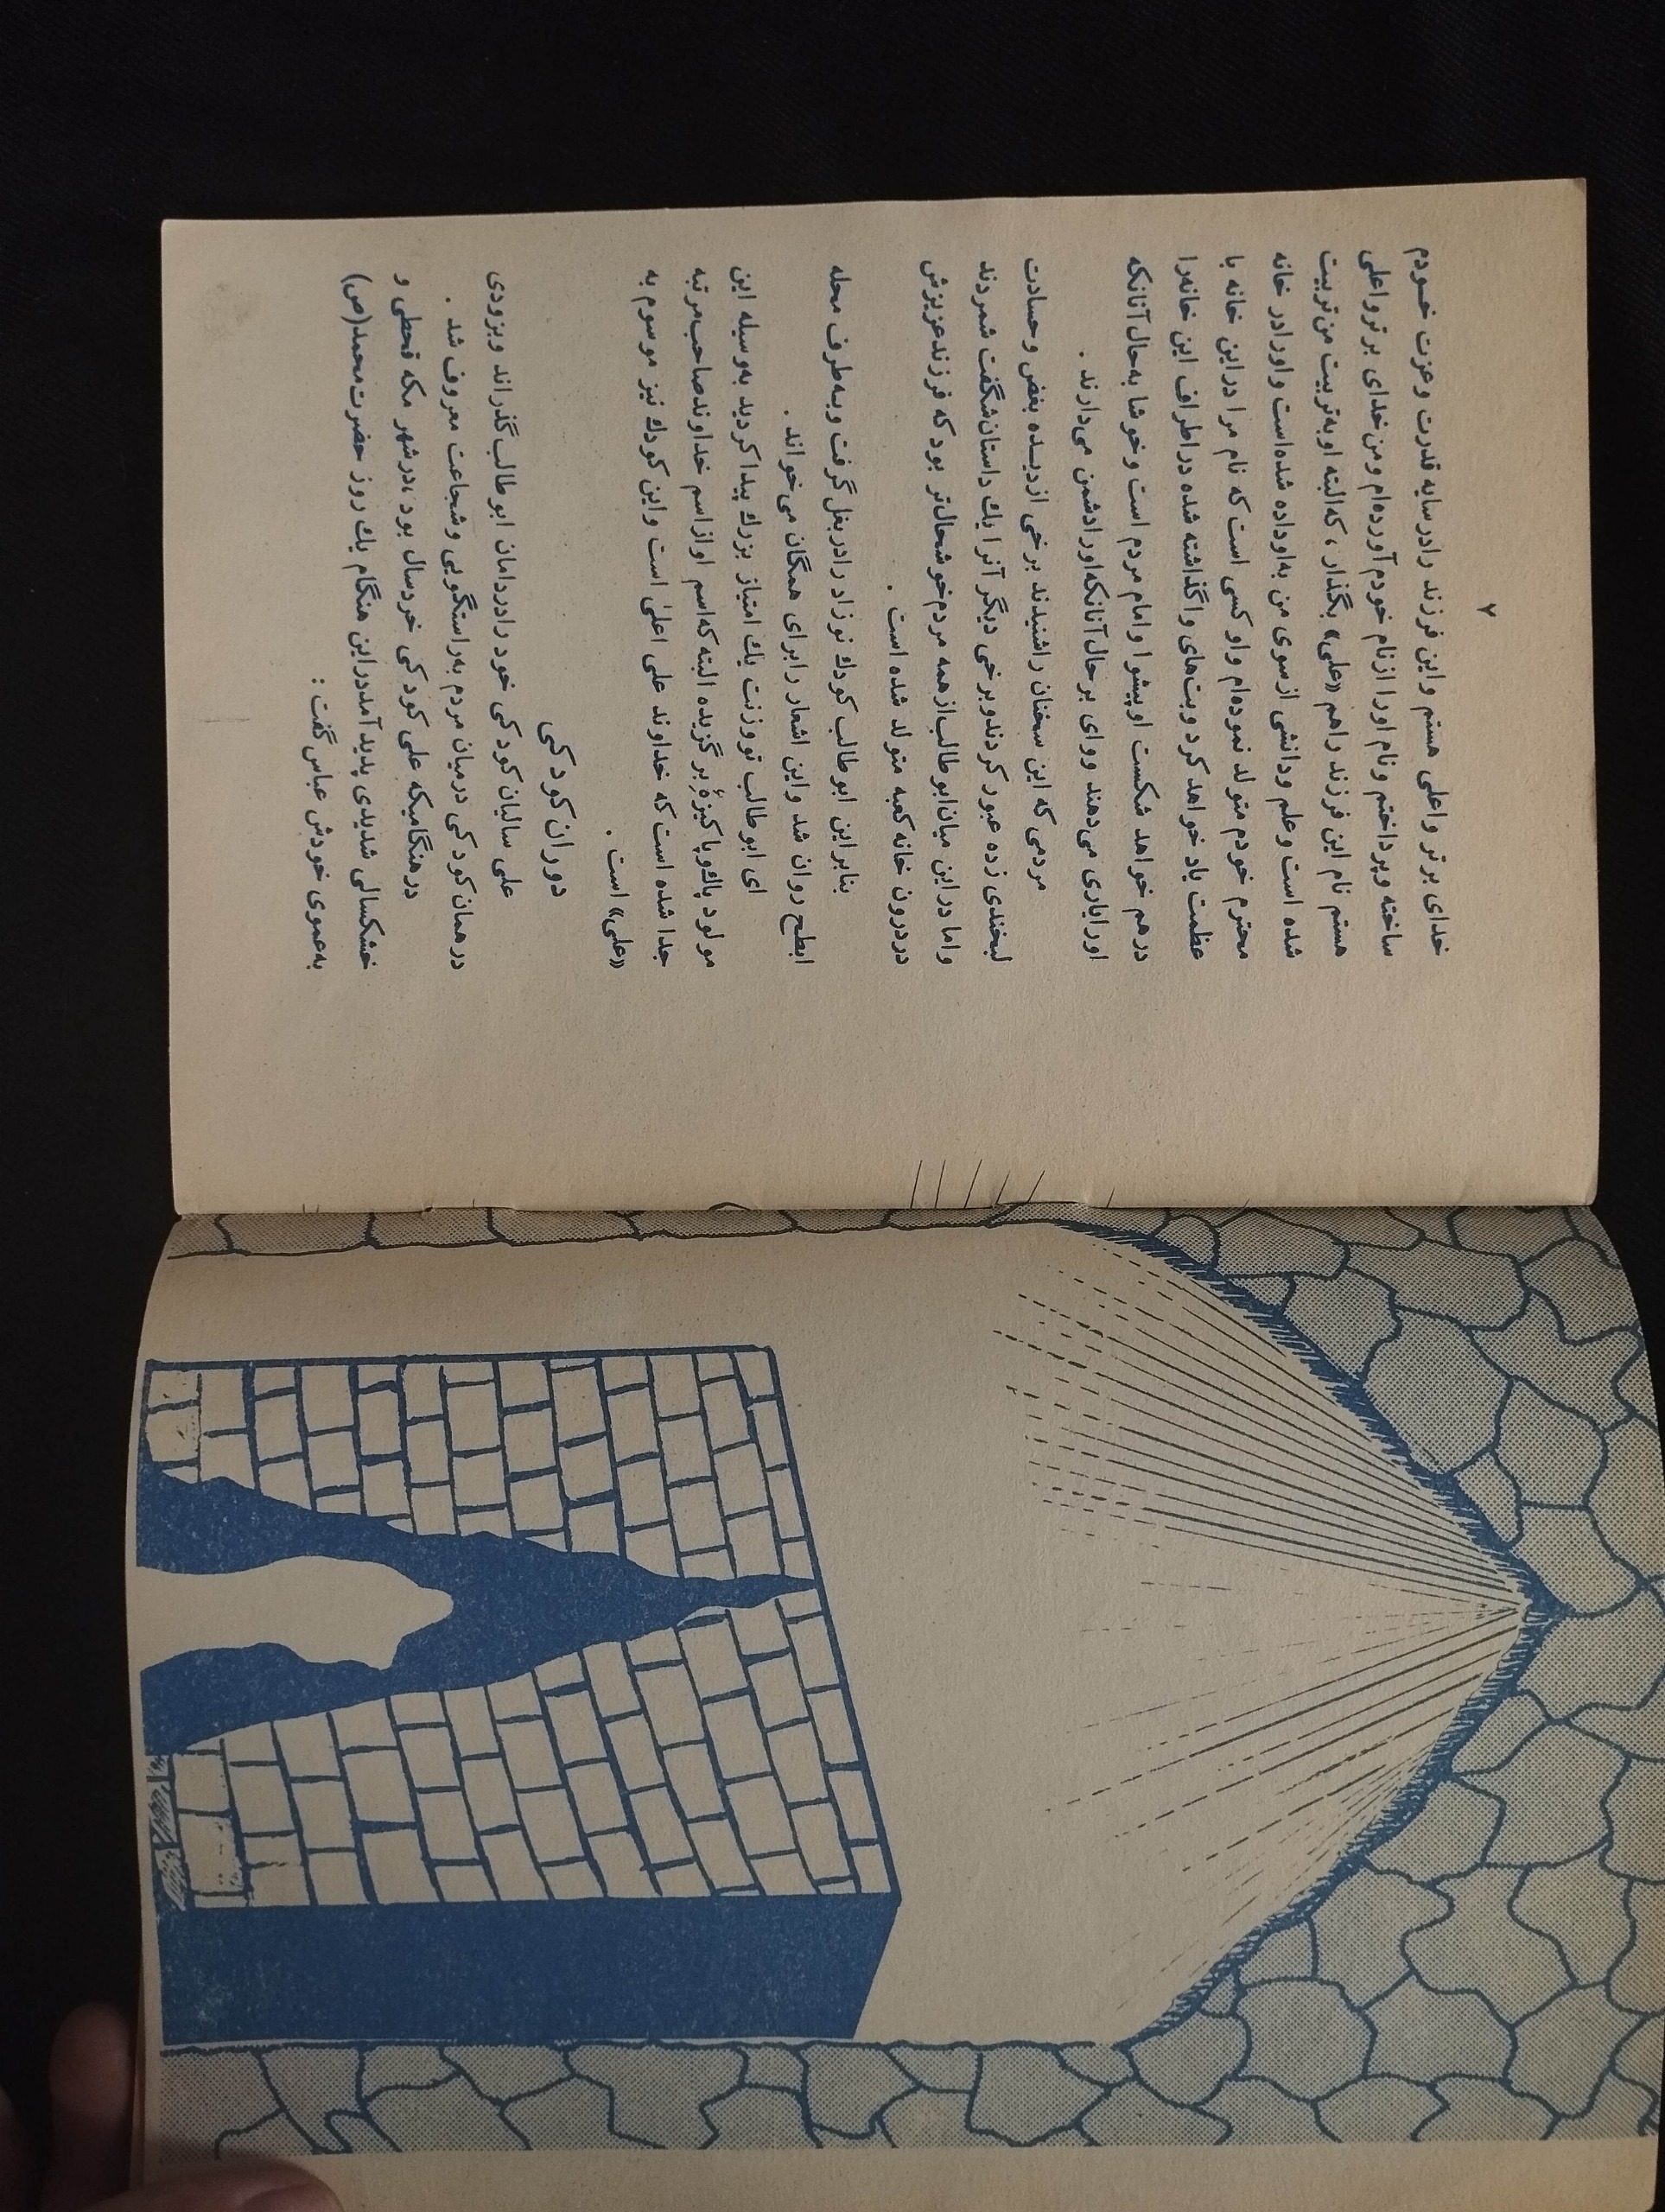 ۷
خدای برتر واعلی هستم واین فرزند رادرسایه قدرت وعزت خودم
ساخته وپرداختم ونام اورا ازنام خودم آورده‌ام ومن‌خدای برترواعلی
هستم نام این فرزند راهم «علی» بگذار ، که‌البته اوبه‌تربیت من‌تربیت
شده است وعلم ودانشی ازسوی من به‌اوداده شده‌است واورادر خانه
محترم خودم متولد نموده‌ام واو کسی است که نام مرا دراین خانه با
عظمت یاد خواهد کرد وبت‌های واگذاشته شده دراطراف این خانه‌را
درهم خواهد شکست اوپیشوا وامام مردم است وخوشا به‌حال‌آنانکه
اورایاری می‌دهند ووای برحال‌آنانکه‌اورادشمن می‌دارند .
مردمی که این سخنان راشنیدند برخی ازدیده بغض وحسادت
لبخندی زده عبور کردندوبرخی دیگر آنرا یك داستان‌شگفت شمردند
واما دراین میان‌ابوطالب‌ازهمه مردم‌خوشحال‌تر بود که فرزندعزیزش
دردرون خانه کعبه متولد شده است .
بنابراین ابوطالب کودك نوزاد رادربغل گرفت وبه‌طرف محله
ابطح روان شد واین اشعار رابرای همگان می‌خواند .
ای ابوطالب تووزنت یك امتیاز بزرك پیداکردید به‌وسیله این
مولود پاك‌وپاکیزهٔ‌برگزیده البته که‌اسم اوازاسم خداوندصاحب‌مرتبه
جداشده است که خداوند علی اعلیٰ است واین کودك نیز موسوم به
«علی» است .
دوران کودکی
علی سالیان کودکی خود رادردامان ابوطالب‌گذراند وبزودی
درهمان کودکی درمیان مردم به‌راستگویی وشجاعت معروف شد .
درهنگامیکه علی کودکی خردسال بود ،درشهر مکه قحطی و
خشکسالی شدیدی پدیدآمددراین هنگام یك روز حضرت‌محمد(ص)
به‌عموی خودش عباس گفت :